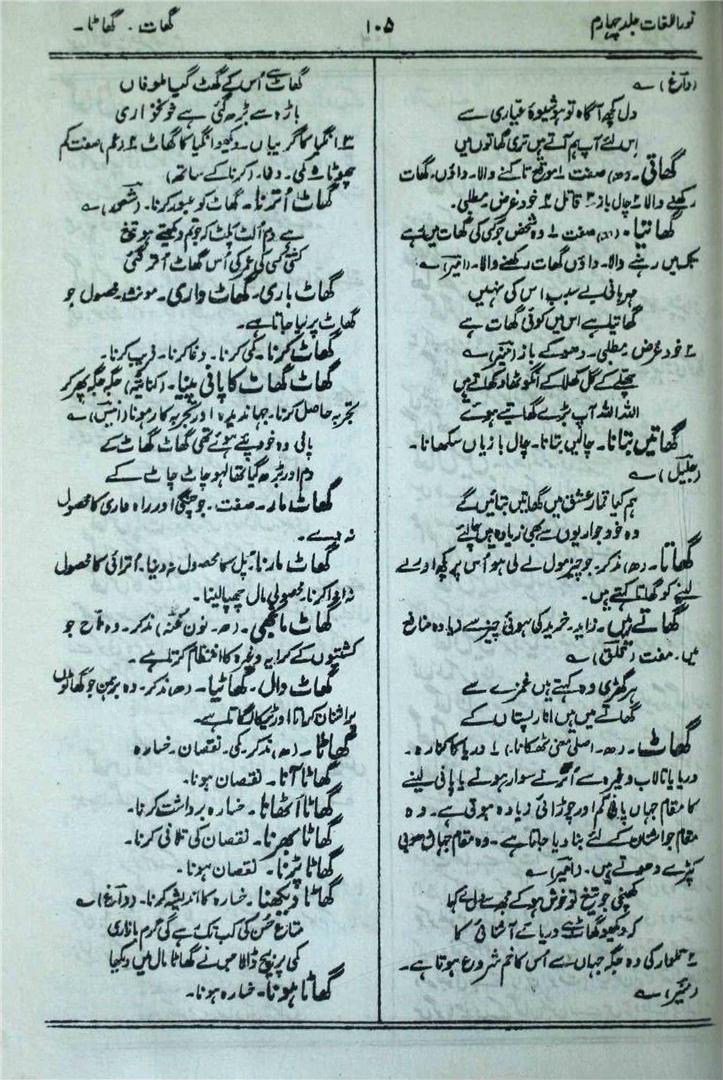 نوراللغات جلد چہارم
۱۰۵
گھات ۔ گھاٹا ۔
(داغ) ؎
دل کچھ آگاہ تو ہو شیوۂ عیاری سے
اس لئے آپ ہم آتے ہیں تری گھاتوں میں
گھاتی ۔ (ھ) صفت ۱ موقع تاکنے والا ۔ داؤں ۔ گھات
رکھنے والا ۲ چال باز ۳ قاتل ۴ خود غرض ۔ مطلبی ۔
گھاتیا ۔ (ار) صفت ۱ وہ شخص جو کسی کی گھات میں رہے
تک میں رہنے والا ۔ داؤں گھات رکھنے والا ۔ (امیر) ؎
مہربانی بے سبب اس کی نہیں
گھاتیا ہے اس میں کوئی گھات ہے
۲ خود غرض ۔ مطلبی ۔ دھوکے باز (امیر) ؎
چھلے کے گل کھلا کے انگوٹھا دکھاتے ہیں
اللہ اللہ آپ بڑے گھاتیے ہوئے
گھاتیں بتانا ۔ چالیں بتانا ۔ چال بازیاں سکھانا ۔
(جلیل) ؎
ہم کیا قمار عشق میں گھاتیں بتائیں گے
وہ خود جواریوں سے بھی زیادہ ہیں چالئے
گھاتا ۔ (ھ) مذکر ۔ جو چیز مول لے لی ہو اُس پر کچھ اور لے
لینے کو گھاتا کہتے ہیں ۔
گھاتے میں ۔ زاید ۔ خرید کی ہوئی چیز سے زیادہ منافع
میں ۔ مفت (قلق) ؎
ہر گھڑی وہ کہتے ہیں غمزے سے
گھاتے میں ہیں انار پستاں کے
گھاٹ ۔ (ھ ۔ اصلی معنی ٹھکانا) ۱ دریا کا کنارہ ۔
دریا یا تالاب وغیرہ سے اُترنے سوار ہونے یا پانی لینے
کا مقام جہاں پانی کم اور چوڑائی زیادہ ہوتی ہے ۔ وہ
مقام جو اشنان کے لئے بنا دیا جاتا ہے ۔ وہ مقام جہاں دھوبی
کپڑے دھوتے ہیں ۔ (امیر) ؎
کھینچی جو تیغ تو خوش ہو کے مجھ سے دل نے کہا
کہ دیکھو گھاٹ ہے دریائے آشنائی کا
۲ تلوار کی وہ جگہ جہاں سے اُس کا خم شروع ہوتا ہے ۔
(منیر) ؎
گھاٹ سے اُس کے گھٹ گیا طوفاں
باڑہ سے بڑھ گئی ہے خونخواری
۳ انگیا کا گریباں ۔ دیکھو انگیا کا گھاٹ ۴ (عم) صفت کم
چھوٹا ۵ کمی ۔ دغا ۔ (کرنا کے ساتھ)
گھاٹ اُترنا ۔ گھاٹ کو عبور کرنا ۔ (شعور) ؎
ہے دم اُلٹ پلٹ کہ جو تم دیکھتے ہو تیغ
کشتی کسی کی عمر کی اُس گھاٹ اُتر گئی
گھاٹ باری ۔ گھاٹ واری ۔ مونث ۔ محصول جو
گھاٹ پر لیا جاتا ہے ۔
گھاٹ کرنا ۔ کمی کرنا ۔ دغا کرنا ۔ فریب کرنا ۔
گھاٹ گھاٹ کا پانی پینا ۔ (کنایۃً) جگہ جگہ پھر کر
تجربہ حاصل کرنا ۔ جہاندیدہ اور تجربہ کار ہونا (انیس) ؎
پانی وہ خود پئے ہوئے تھی گھاٹ گھاٹ کے
دم اور بڑھ گیا تھا لہو چاٹ چاٹ کے
گھاٹ مار ۔ صفت ۔ جو چنگی اور راہ داری کا محصول
نہ دے ۔
گھاٹ مارنا ۔ پُل کا محصول نہ دینا ۔ اُترائی کا محصول
نہ ادا کرنا ۔ محصولی مال چھپا لینا ۔
گھاٹ مانجھی ۔ (ھ ۔ نون غنّہ) مذکر ۔ وہ ملّاح جو
کشتیوں کے کرایہ وغیرہ کا انتظام کرتا ہے ۔
گھاٹ وال ۔ گھاٹیا ۔ (ھ) مذکر ۔ وہ برہمن جو گھاٹوں
پر اشنان کراتا اور ٹیکا لگاتا ہے ۔
گھاٹا ۔ (ھ) مذکر ۔ کمی ۔ نقصان ۔ خسارہ
گھاٹا آنا ۔ نقصان ہونا ۔
گھاٹا اُٹھانا ۔ خسارہ برداشت کرنا ۔
گھاٹا بھرنا ۔ نقصان کی تلافی کرنا ۔
گھاٹا پڑنا ۔ نقصان ہونا ۔
گھاٹا دیکھنا ۔ خسارہ کا اندیشہ کرنا ۔ (داغ) ؎
متاع حُسن کی کب تک رہے گی گرم بازاری
کمی پر بیچ ڈالا میں نے گھاٹا مال میں دیکھا
گھاٹا ہونا ۔ خسارہ ہونا ۔